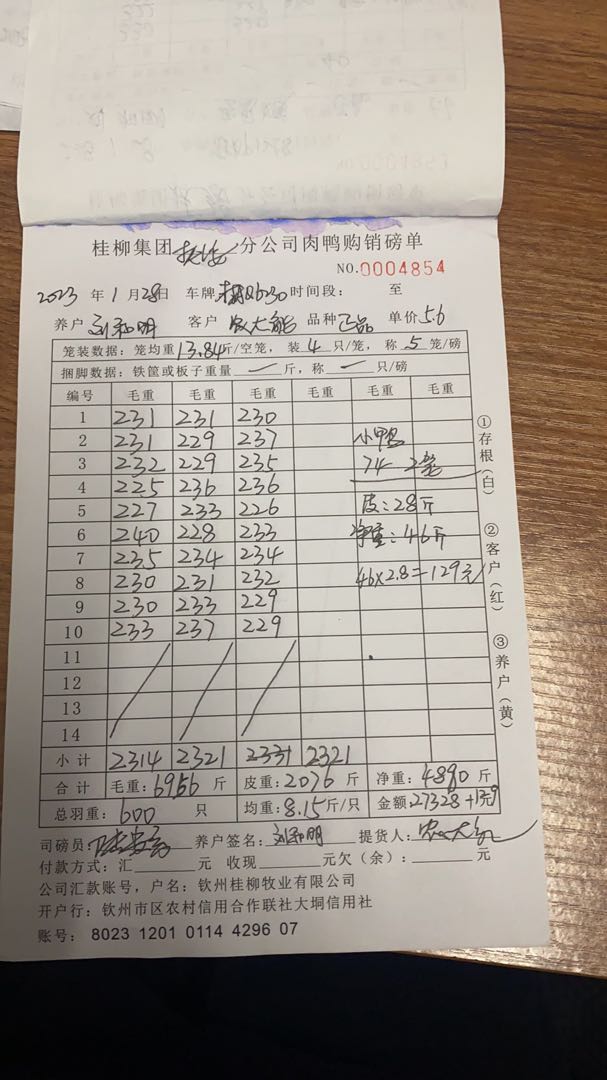 桂柳集团 分公司肉鸭购销磅单
NO.0004854
2023 年 1 月 28 日 车牌: 时间段: 至
养户 刘和明 客户 农大能 品种 正品 单价 5.6
笼装数据: 笼均重 13.84 斤/空笼, 装 4 只/笼, 称 5 笼/磅
捆脚数据: 铁筐或板子重量 — 斤, 称 — 只/磅
编号 毛重 毛重 毛重 毛重 毛重 毛重
1 231 231 230
2 231 229 237 小鸭
3 232 229 235 74 2笼
4 225 236 236
5 227 233 226 皮:28斤
6 240 228 233 净重:46斤
7 235 234 234
8 230 231 232 46×2.8=129元
9 230 233 229
10 233 237 229
11
12
13
14
小计 2314 2321 2331 2321
合计 毛重: 6966 斤 皮重: 2076 斤 净重: 4890 斤
总羽重: 600 只 均重: 8.15 斤/只 金额 27328+129
司磅员: 养户签名: 刘和明 提货人:
付款方式: 汇 元 收现 元欠(余): 元
公司汇款账号, 户名: 钦州桂柳牧业有限公司
开户行: 钦州市区农村信用合作联社大垌信用社
账号: 8023 1201 0114 4296 07
①存根(白)
②客户(红)
③养户(黄)